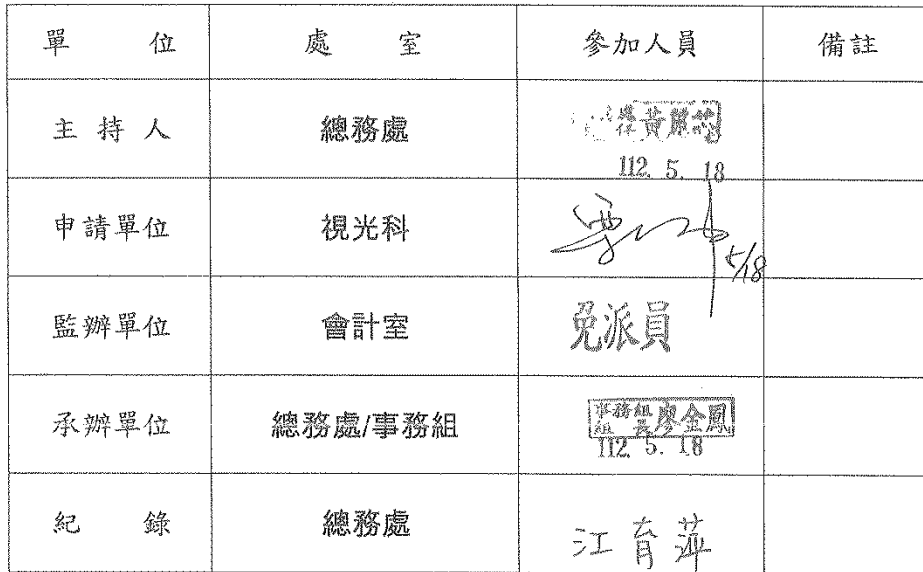 單 位 處 室 參加人員 備註
主 持 人 總務處 黃
112. 5. 18
申請單位 視光科
5/18
監辦單位 會計室 免派員
承辦單位 總務處/事務組 事務組組長廖金鳳
112. 5. 18
紀 錄 總務處 江育萍